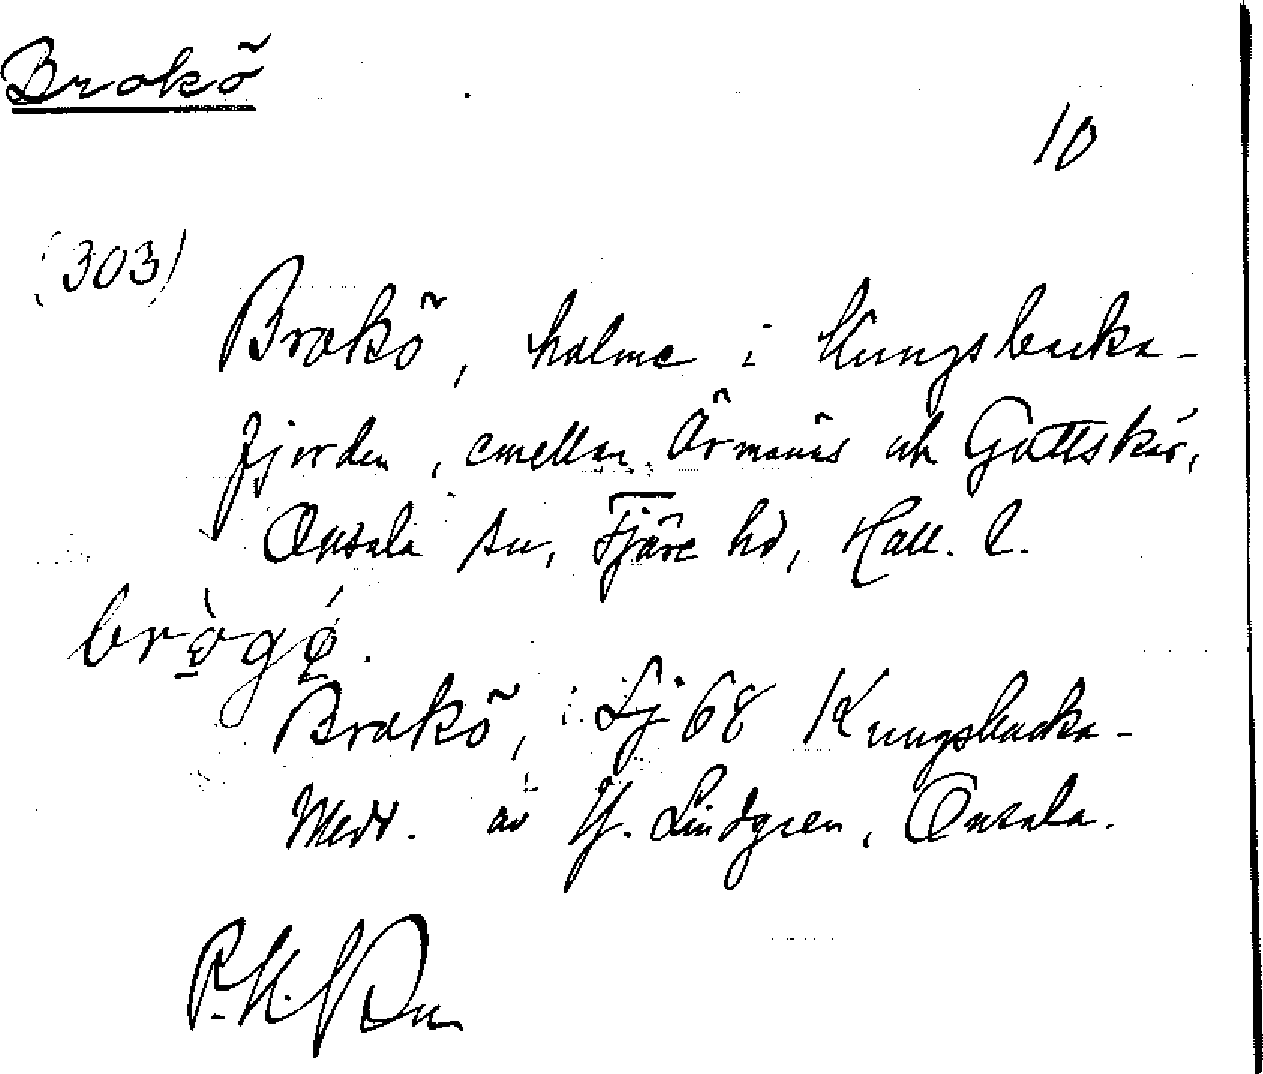 Brokö
10
(303)
Brokö, holme i Kungsbacka-
fjorden, emellan Ärmanäs och Gottskär,
Onsala sn, Fjäre hd, Hall. l.
brògǿ.
Brokö, i Lj 68 Kungsbacka-
Medd. av Hj. Lindgren, Onsala.